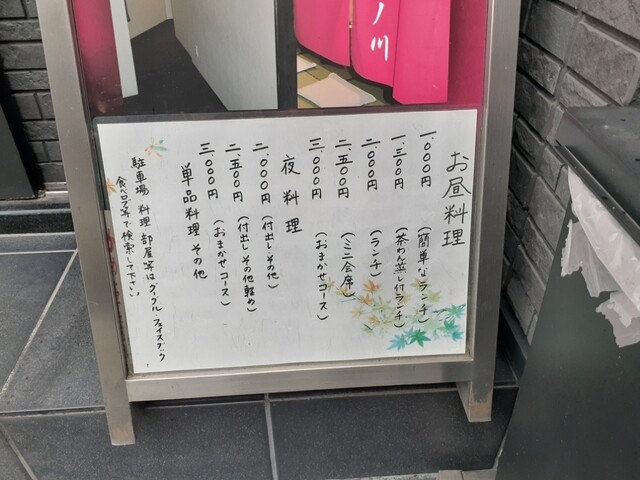 ノ川
お昼料理
一、〇〇〇円 (簡単なランチ)
一、三〇〇円 (茶わん蒸し付ランチ)
二、〇〇〇円 (ランチ)
二、五〇〇円 (ミニ会席)
三、〇〇〇円 (おまかせコース)
夜料理
二、〇〇〇円 (付出しその他)
二、五〇〇円 (付出しその他軽め)
三、〇〇〇円 (おまかせコース)
単品料理 その他
駐車場 料理 部屋等はグーグル・フェイスブック
食べログ等で検索して下さい